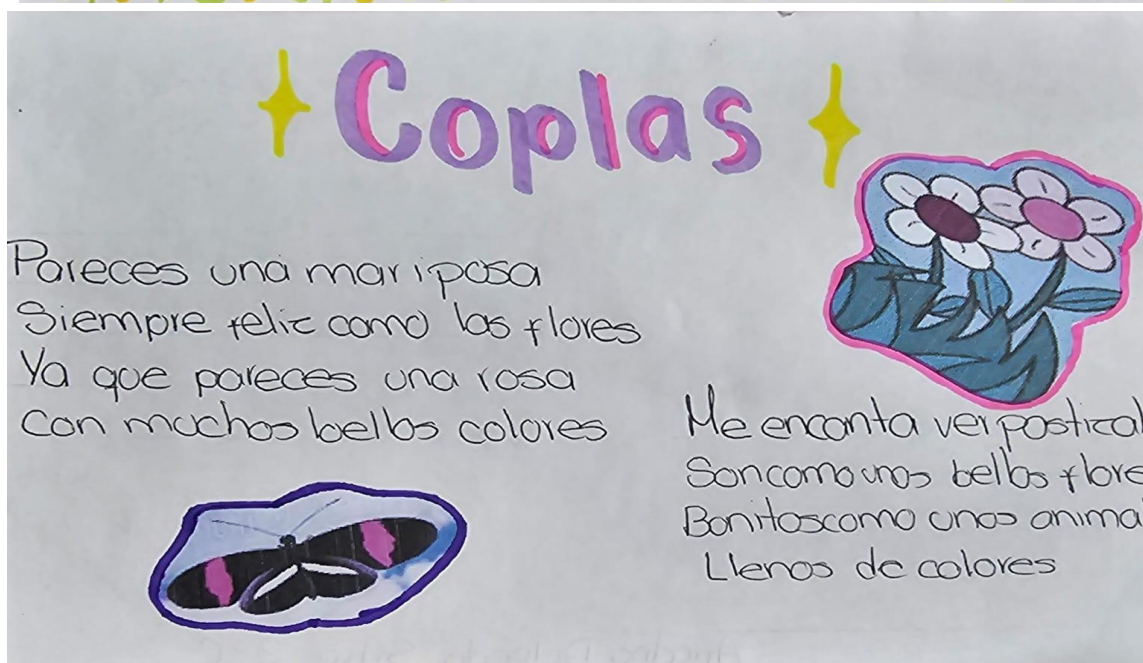 Coplas
Pareces una mariposa
Siempre feliz como las flores
Ya que pareces una rosa
Con muchos bellos colores
Me encanta ver
Son como unas bellas
Bonitos como unos
Llenos de colores